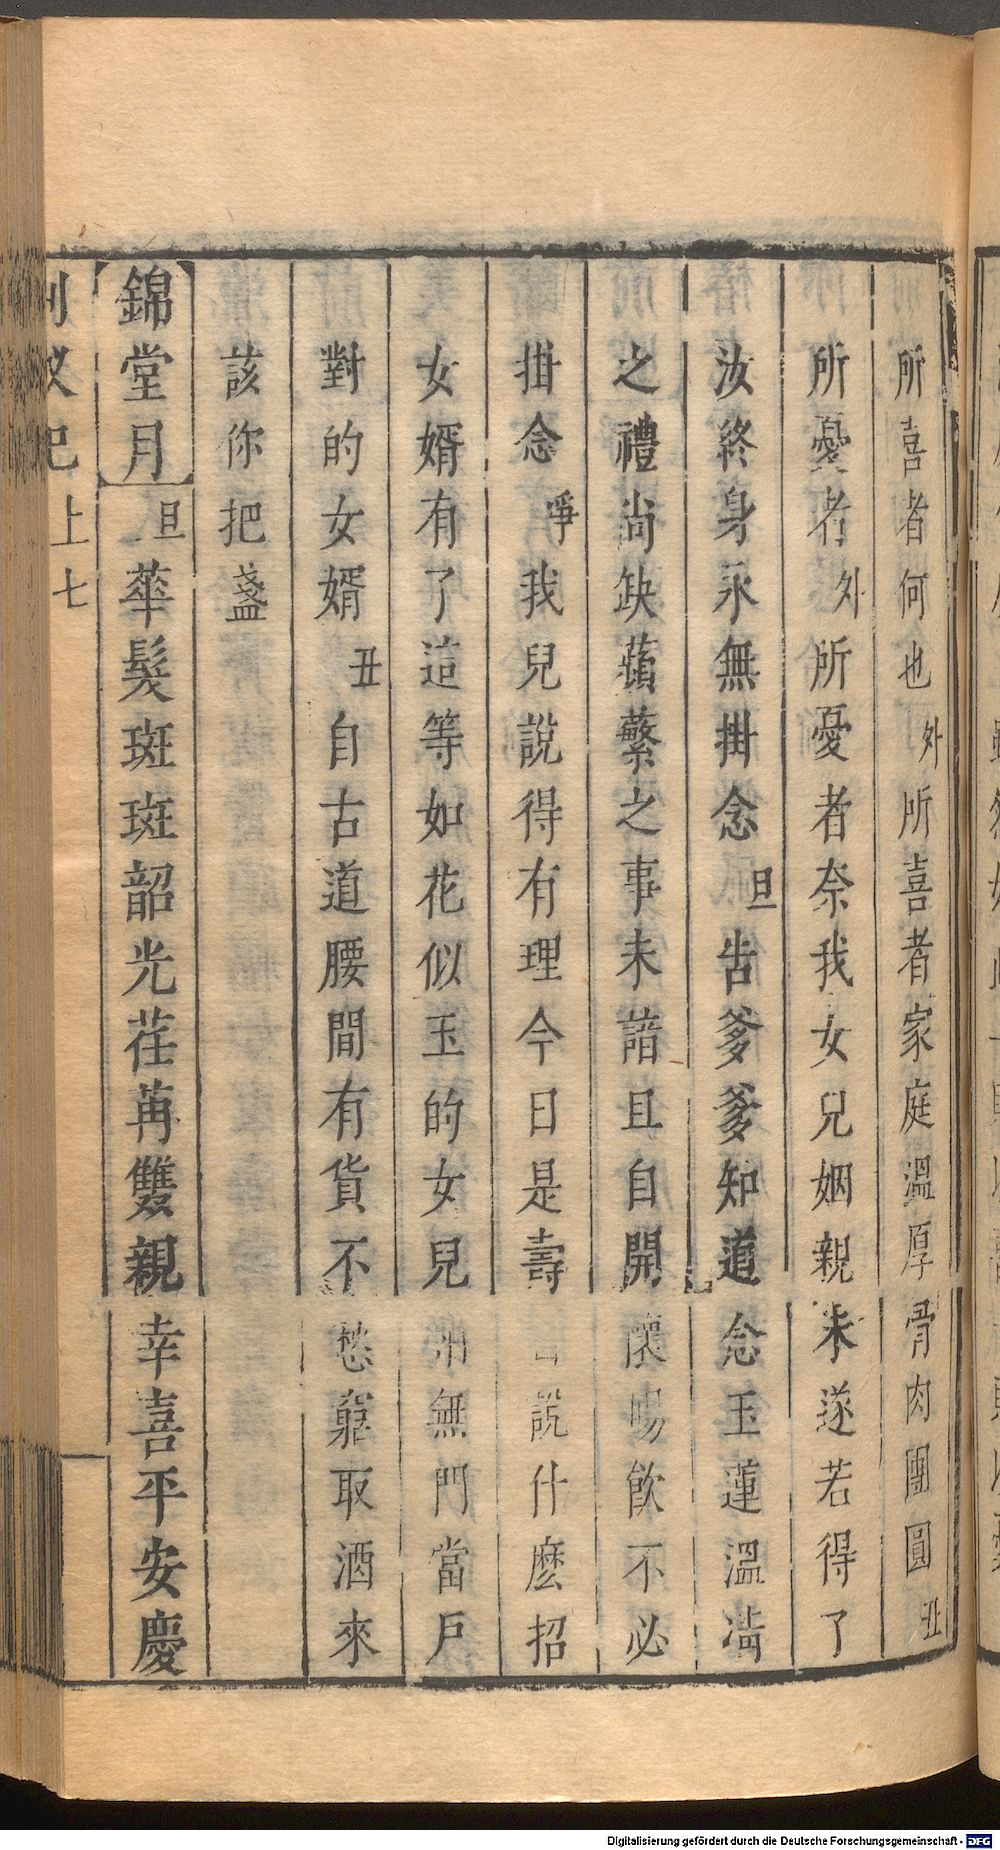 所喜者何也外所喜者家庭溫厚骨肉團圓丑
所憂者外所憂者奈我女兒姻親未遂若得了
汝終身永無掛念旦告爹爹知道念玉蓮溫凊
之禮尚缺蘋蘩之事未諳且自開懷暢飲不必
掛念淨我兒說得有理今日是壽日說什麼招
女婿有了這等如花似玉的女兒怕無門當戶
對的女婿丑自古道腰間有貨不愁窮取酒來
該你把盞
錦堂月旦華髮斑斑韶光荏苒雙親幸喜平安慶
荆釵記上七
Digitalisierung gefördert durch die Deutsche Forschungsgemeinschaft - DFG